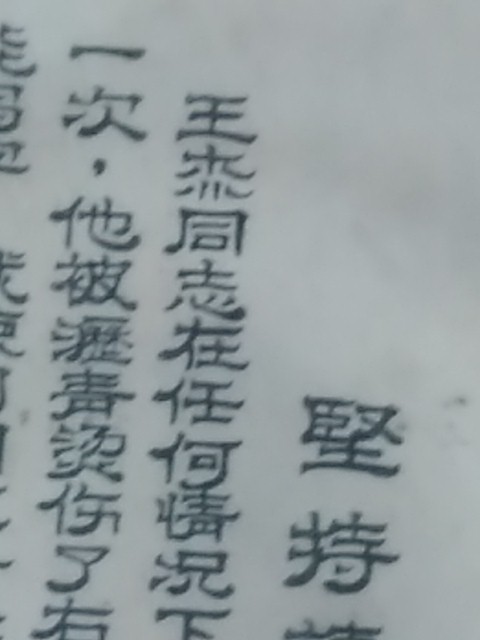 堅持
王杰同志在任何情况下
一次，他被瀝青烫伤了右